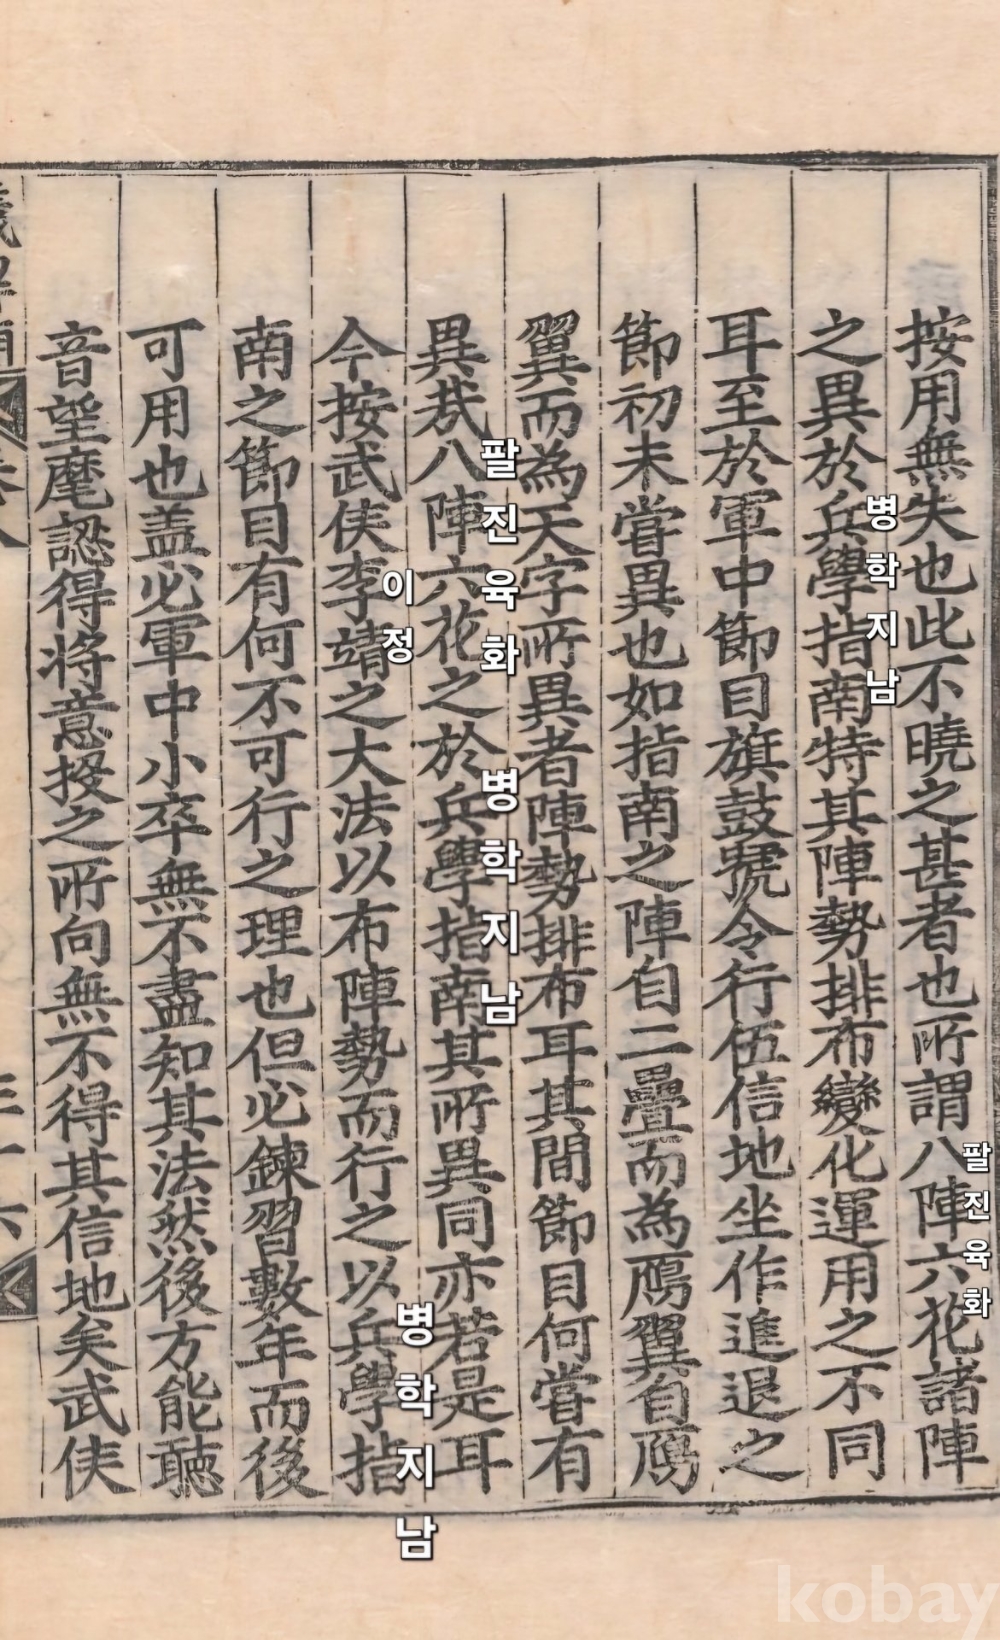 按用無失也此不曉之甚者也所謂八陣六花諸陣
之異於兵學指南特其陣勢排布變化運用之不同
耳至於軍中節目旗鼓號令行伍信地坐作進退之
節初未嘗異也如指南之陣自二疊而為鴈翼自鴈
翼而為天字所異者陣勢排布耳其間節目何嘗有
異哉八陣六花之於兵學指南其所異同亦若是耳
今按武侯李靖之大法以布陣勢而行之以兵學指
南之節目有何不可行之理也但必鍊習數年而後
可用也盖必軍中小卒無不盡知其法然後方能聽
音望麾認得將意投之所向無不得其信地矣武侯
팔진육화
병학지남
팔진육화
병학지남
이정
병학지남
kobay